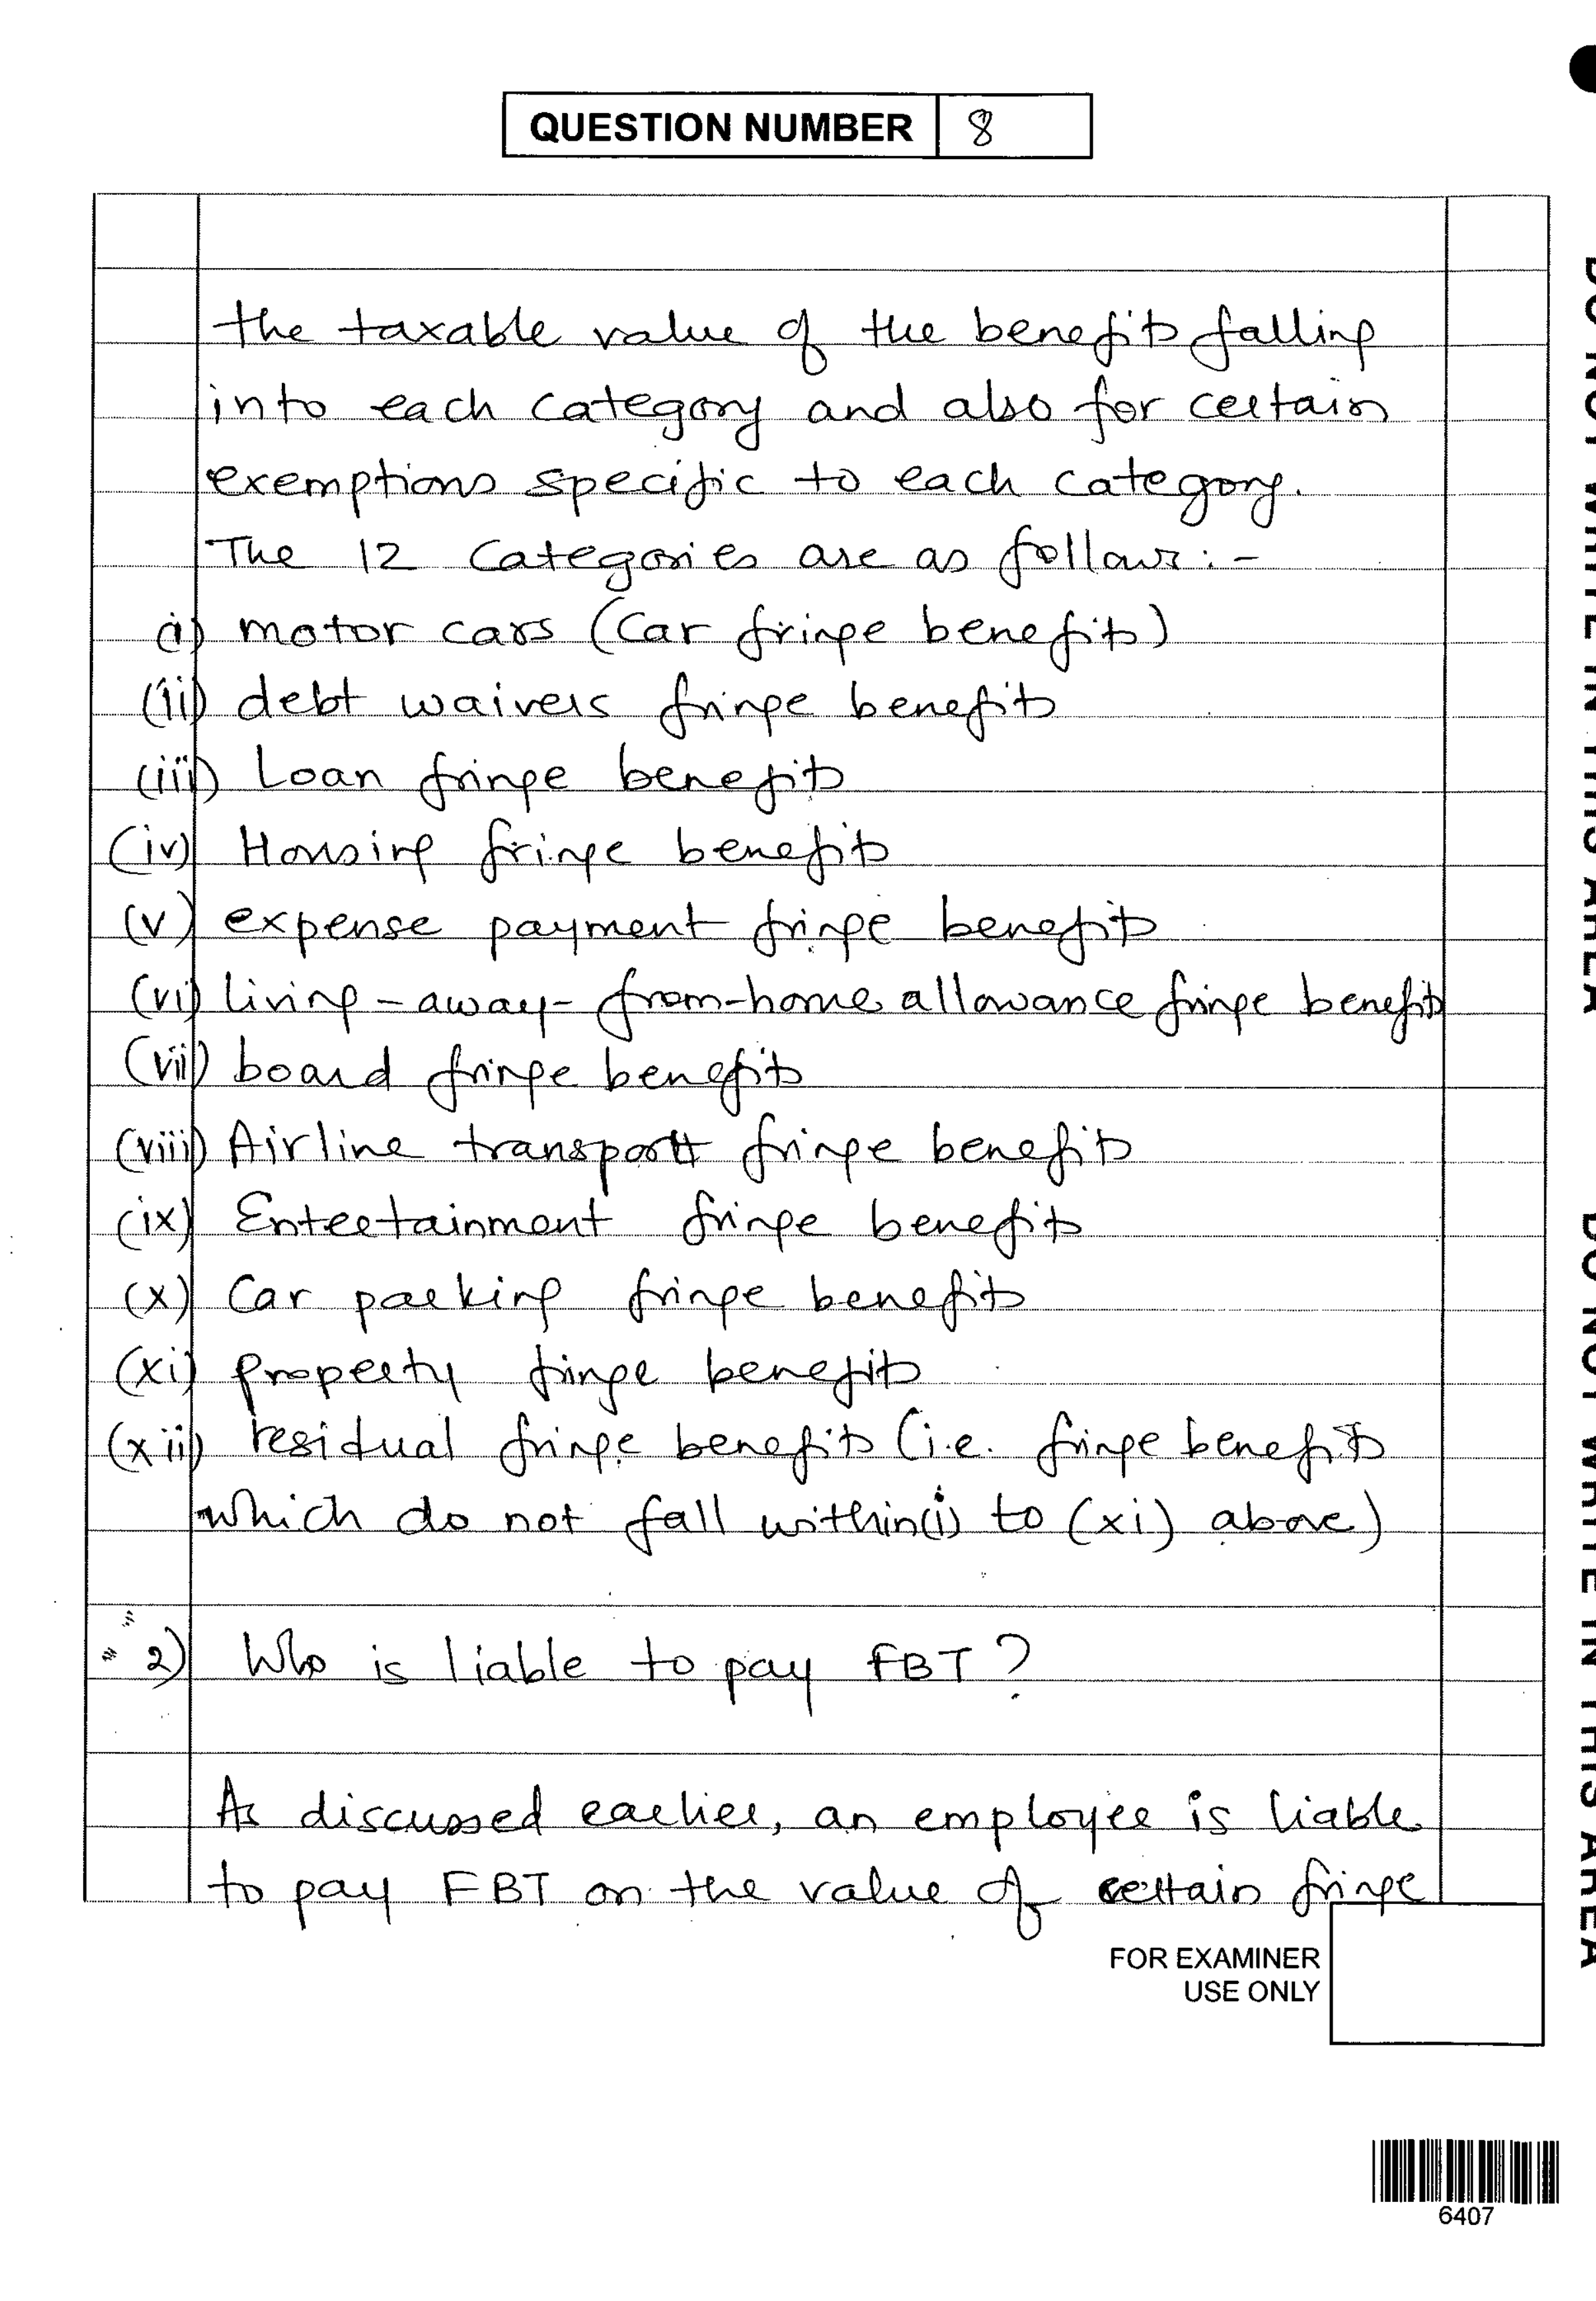 QUESTION NUMBER 8
the taxable value of the benefits falling
into each category and also for certain
exemptions specific to each category.
The 12 categories are as follows:-
i) motor cars (Car fringe benefits)
(ii) debt waivers fringe benefits
(iii) Loan fringe benefits
(iv) Housing fringe benefits
(v) expense payment fringe benefits
(vi) living-away-from-home allowance fringe benefits
(vii) board fringe benefits
(viii) Airline transport fringe benefits
(ix) Entertainment fringe benefits
(x) Car parking fringe benefits
(xi) property fringe benefits
(xii) residual fringe benefits (i.e. fringe benefits
which do not fall within (i) to (xi) above)
2) Who is liable to pay FBT?
As discussed earlier, an employee is liable
to pay FBT on the value of certain fringe
FOR EXAMINER
USE ONLY
6407
DO NOT WRITE IN THIS AREA
DO NOT WRITE IN THIS AREA